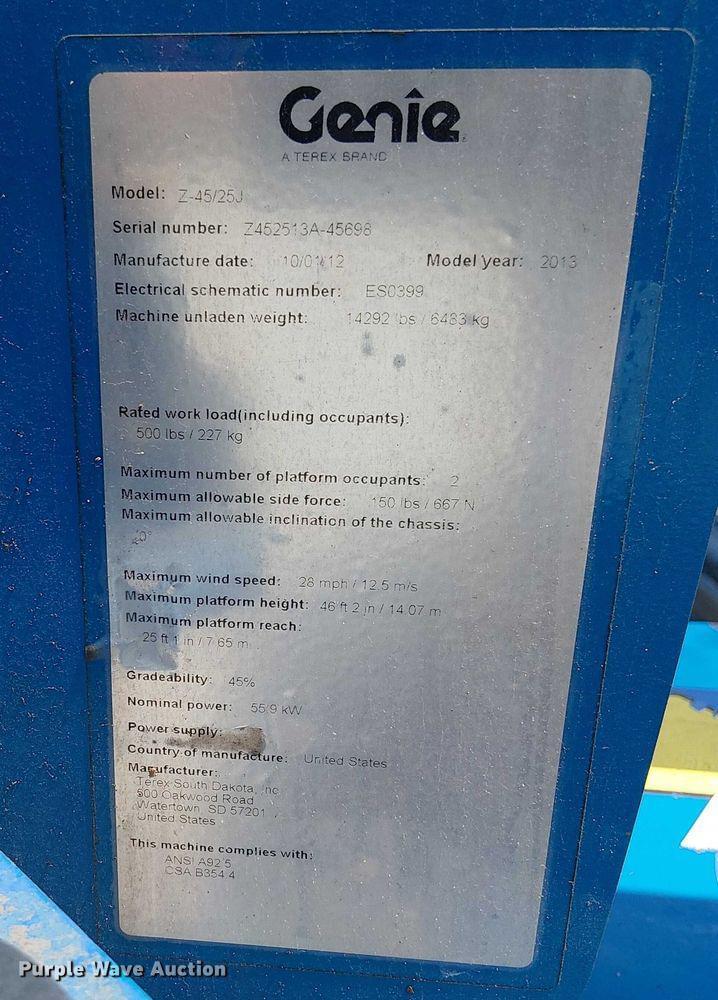 Genie
A TEREX BRAND
Model: Z-45/25J
Serial number: Z452513A-45698
Manufacture date: 10/01/12 Model year: 2013
Electrical schematic number: ES0399
Machine unladen weight: 14292 lbs / 6483 kg
Rated work load(including occupants):
500 lbs / 227 kg
Maximum number of platform occupants: 2
Maximum allowable side force: 150 lbs / 667 N
Maximum allowable inclination of the chassis:
0°
Maximum wind speed: 28 mph / 12.5 m/s
Maximum platform height: 46 ft 2 in / 14.07 m
Maximum platform reach:
25 ft 1 in / 7.65 m
Gradeability: 45%
Nominal power: 55.9 kW
Power supply:
Country of manufacture: United States
Manufacturer:
Terex South Dakota, Inc
500 Oakwood Road
Watertown, SD 57201
United States
This machine complies with:
ANSI A92.5
CSA B354.4
Purple Wave Auction